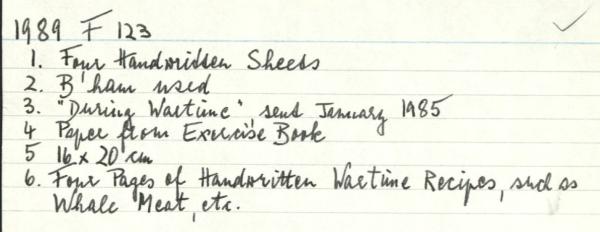 1989 F 123
1. Four Handwritten Sheets
2. B'ham used
3. "During Wartime", sent January 1985
4 Paper from Exercise Book
5 16 x 20 cm
6. Four Pages of Handwritten Wartime Recipes, such as
Whale Meat, etc.